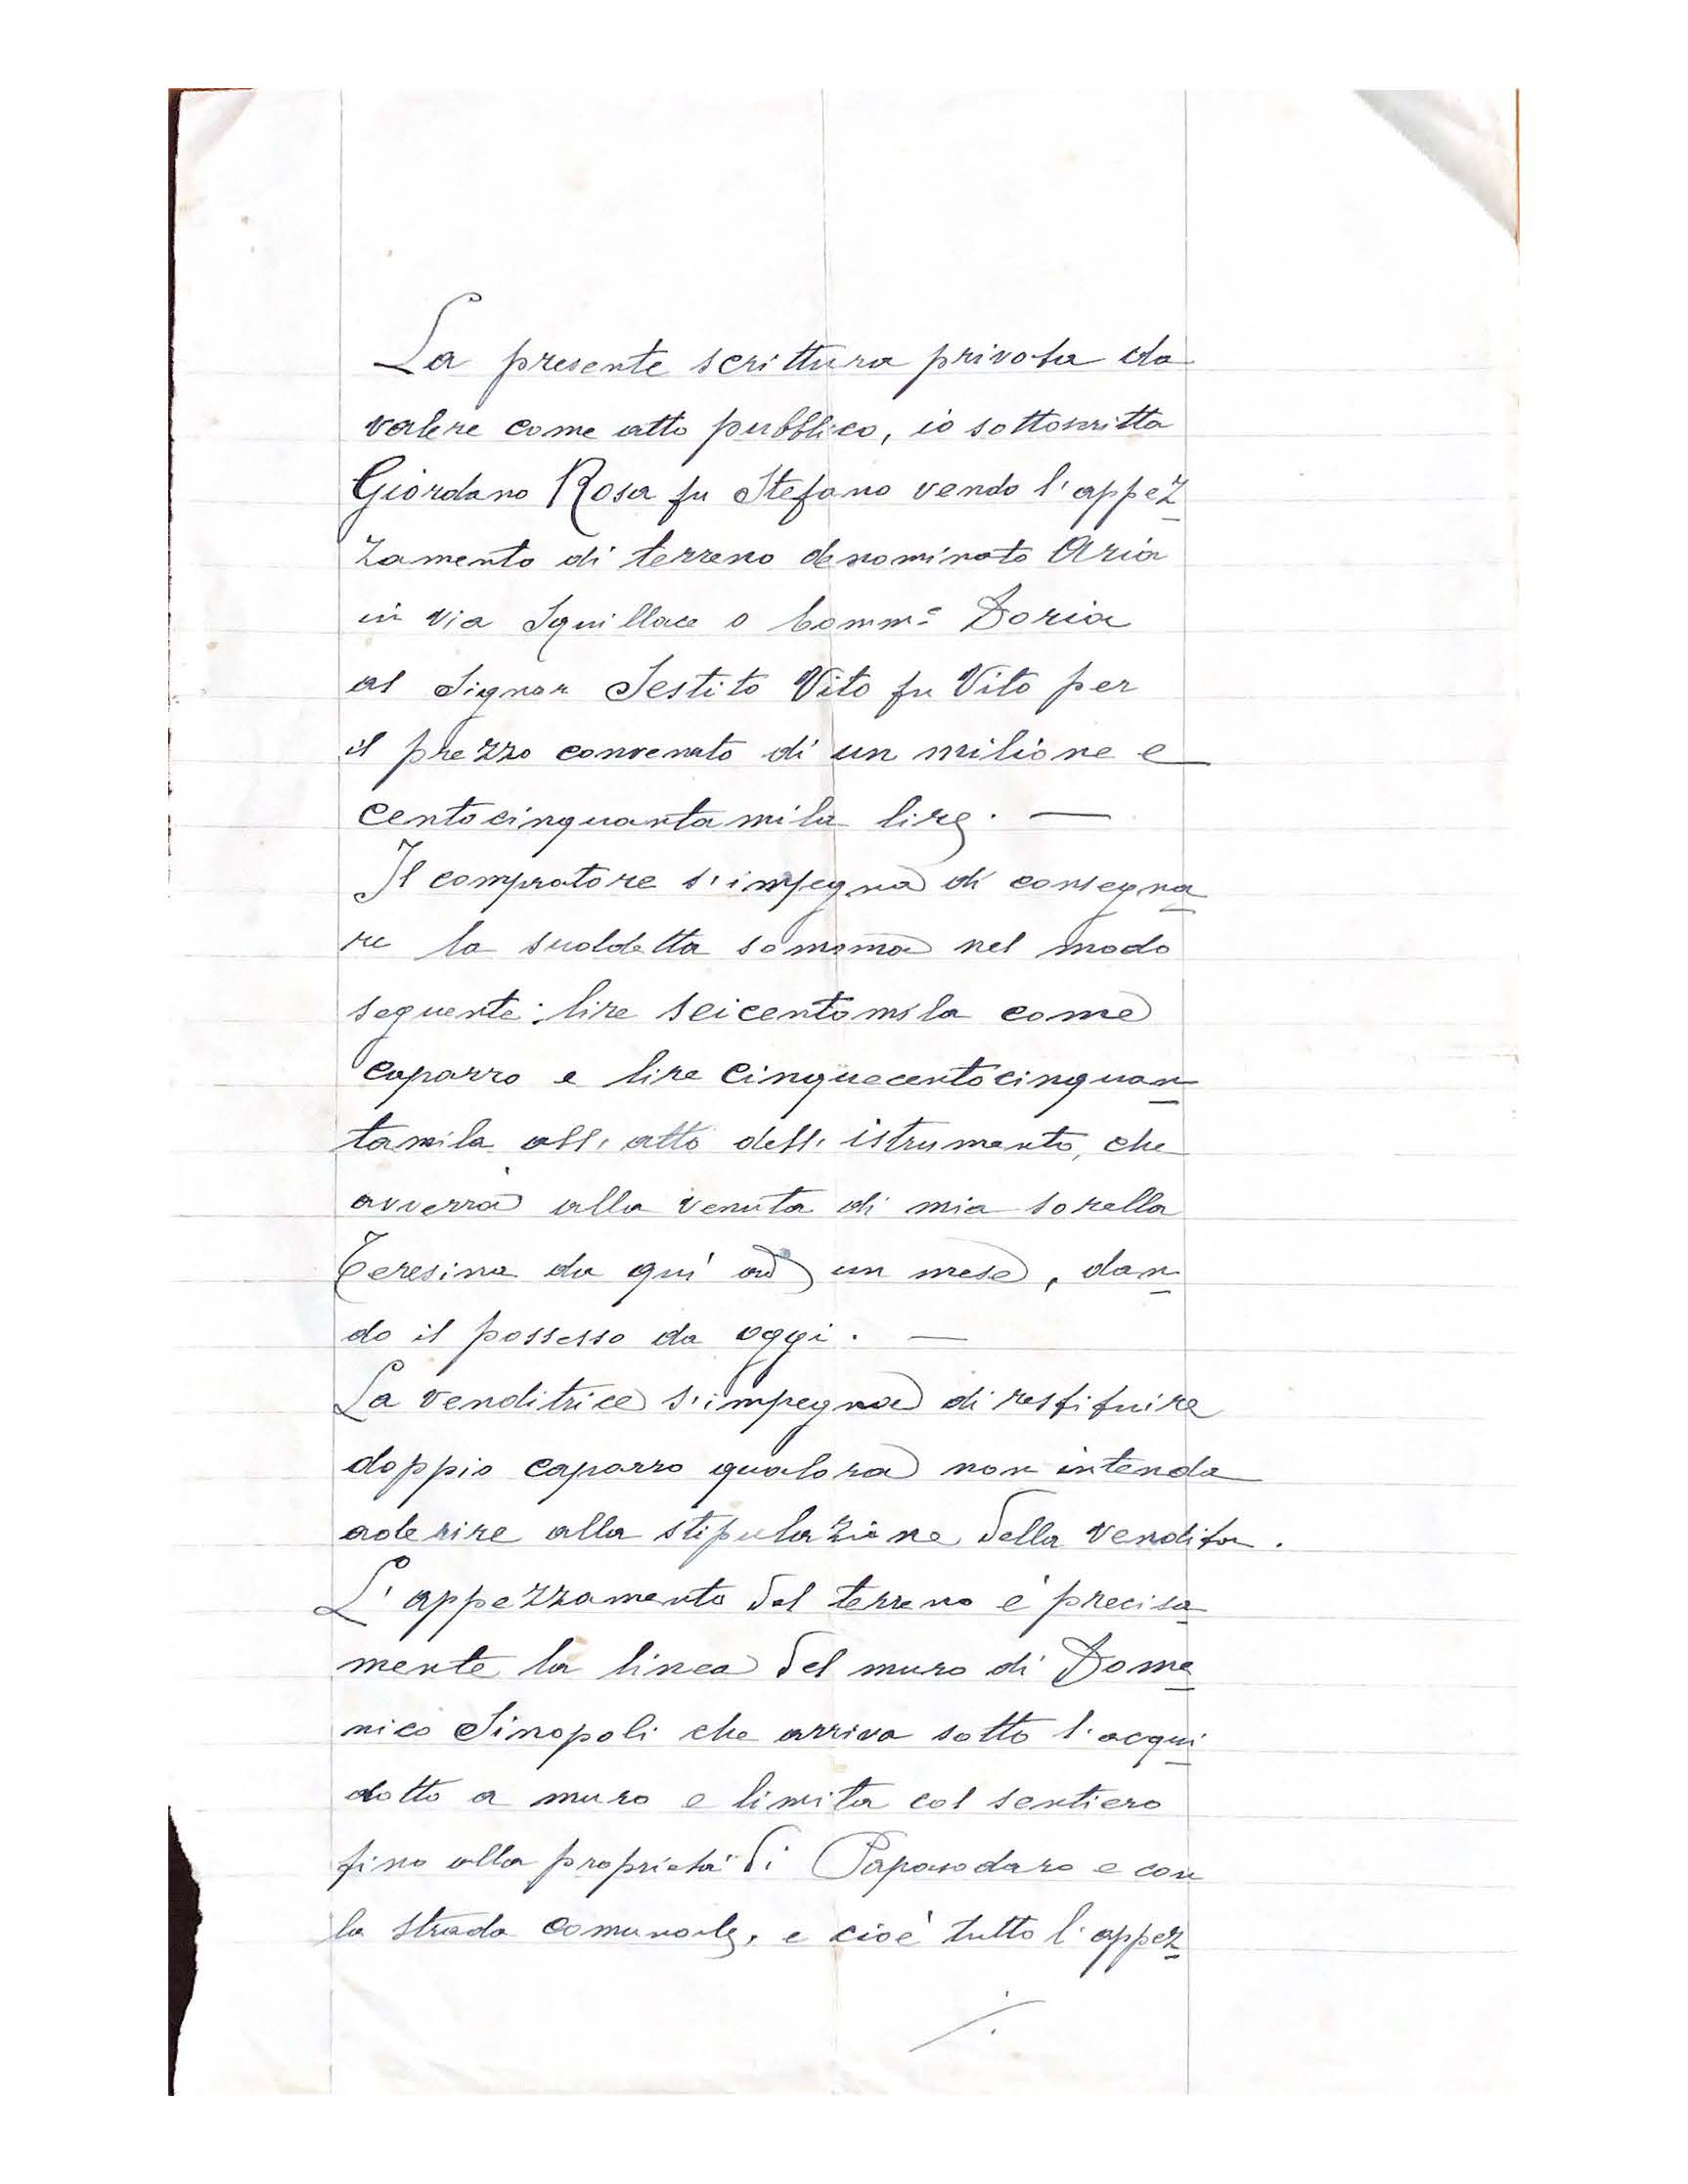 La presente scrittura privata da
valere come atto pubblico, io sottoscritta
Giordano Rosa fu Stefano vendo l'appez
zamento di terreno denominato Aria
in via Squillace o Comm.e Doria
al Signor Sestito Vito fu Vito per
il prezzo convenuto di un milione e
centocinquantamila lire. —
Il compratore s'impegna di consegna
re la suddetta somma nel modo
seguente: lire seicentomila come
caparro e lire cinquecentocinquan
tamila all'atto dell'istrumento, che
avverrà alla venuta di mia sorella
Teresina da quì ad un mese, dan
do il possesso da oggi. —
La venditrice s'impegna di restituire
doppio caparro qualora non intenda
aderire alla stipulazione della vendita.
L'appezzamento del terreno è precisa
mente la linea del muro di Dome
nico Sinopoli che arriva sotto l'acqui
dotto a muro e limita col sentiero
fino alla proprietà di Papasodaro e con
la strada comunale, e cioè tutto l'appez
./.